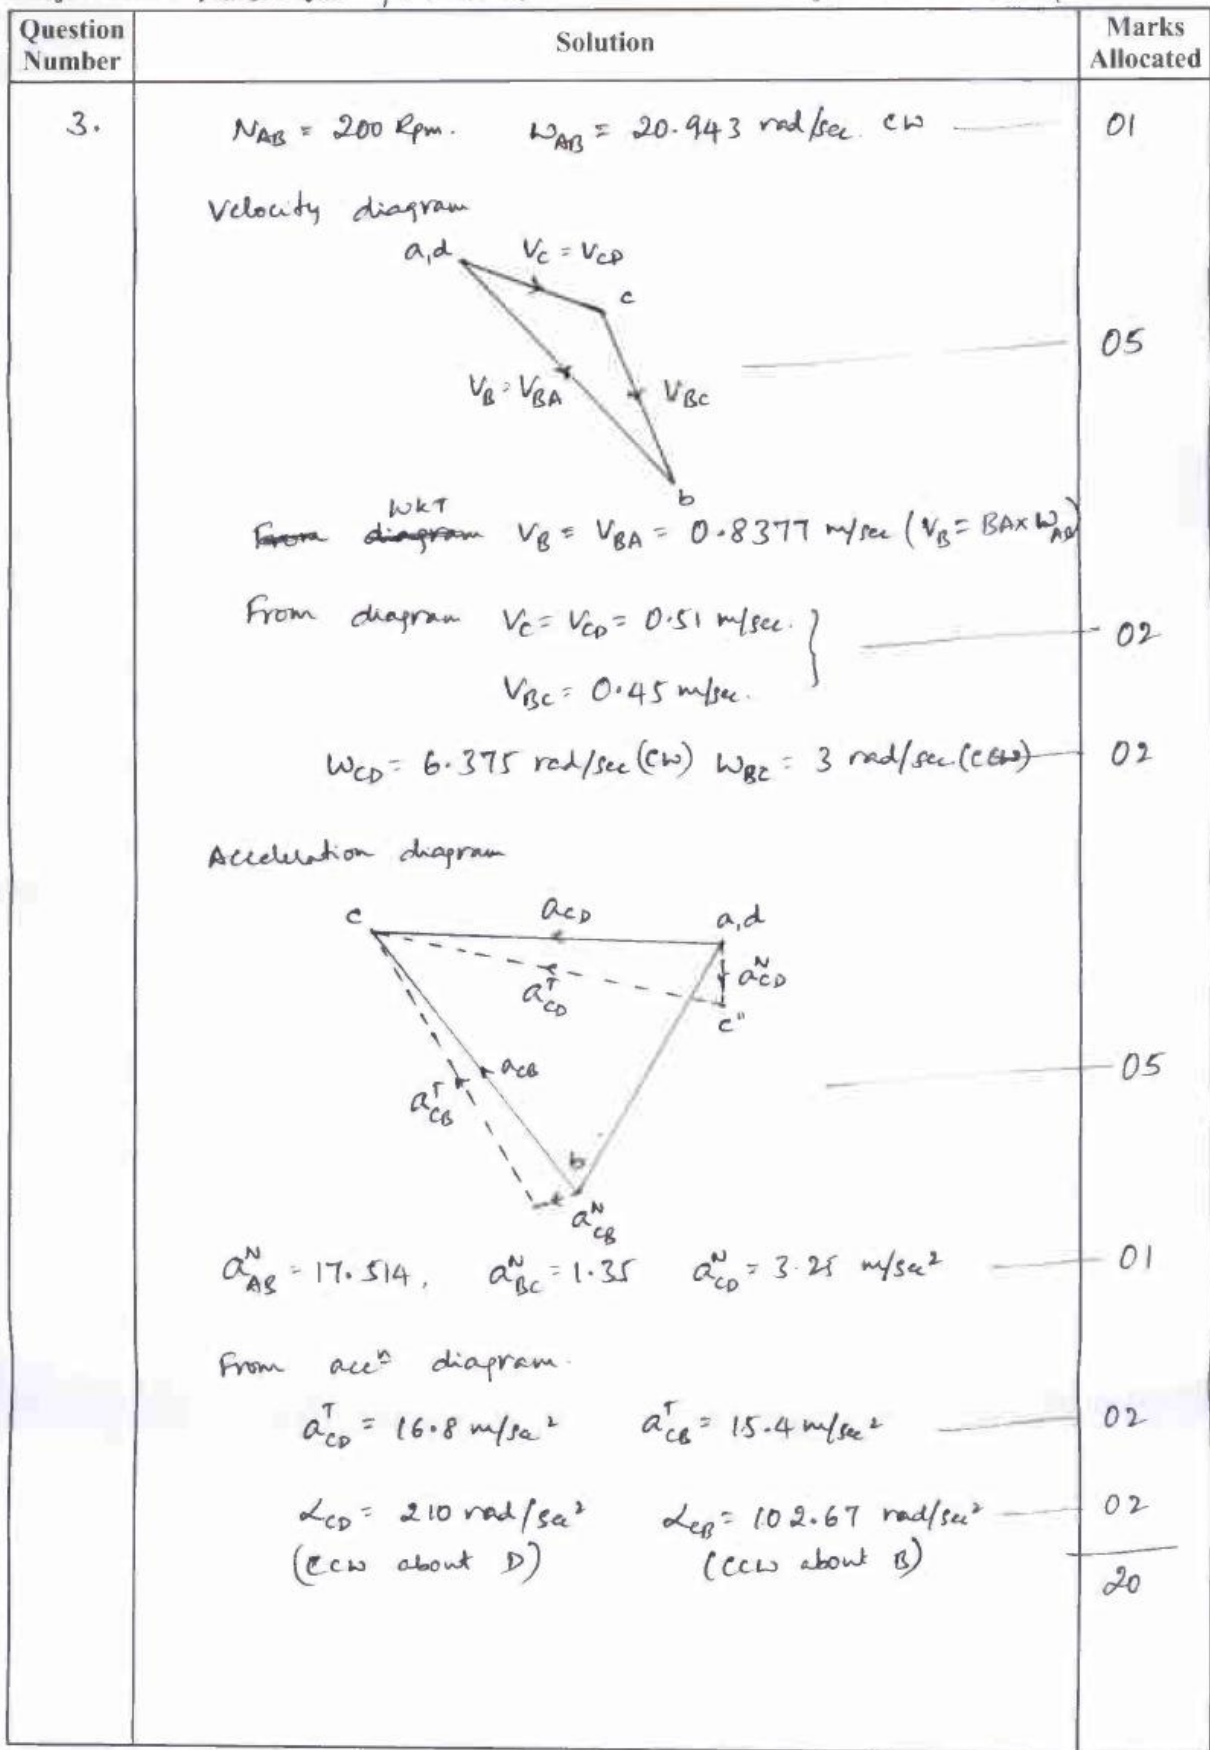 Question Number Solution Marks Allocated
3. N_AB = 200 Rpm. ω_AB = 20.943 rad/sec. CW 01
Velocity diagram
a,d V_C = V_CD
c
05
V_B = V_BA V_BC
b
WKT
From diagram V_B = V_BA = 0.8377 m/sec (V_B = BA × ω_AB)
From diagram V_C = V_CD = 0.51 m/sec. } 02
V_BC = 0.45 m/sec.
ω_CD = 6.375 rad/sec (CW) ω_BC = 3 rad/sec. (CCW) 02
Acceleration diagram
c a_CD a,d
a^N_CD
a^T_CD
c"
a_CB 05
a^T_CB
b
a^N_CB
a^N_AB = 17.514, a^N_BC = 1.35 a^N_CD = 3.25 m/sec² 01
From accⁿ diagram.
a^T_CD = 16.8 m/sec² a^T_CB = 15.4 m/sec² 02
α_CD = 210 rad/sec² α_CB = 102.67 rad/sec² 02
(CCW about D) (CCW about B)
20